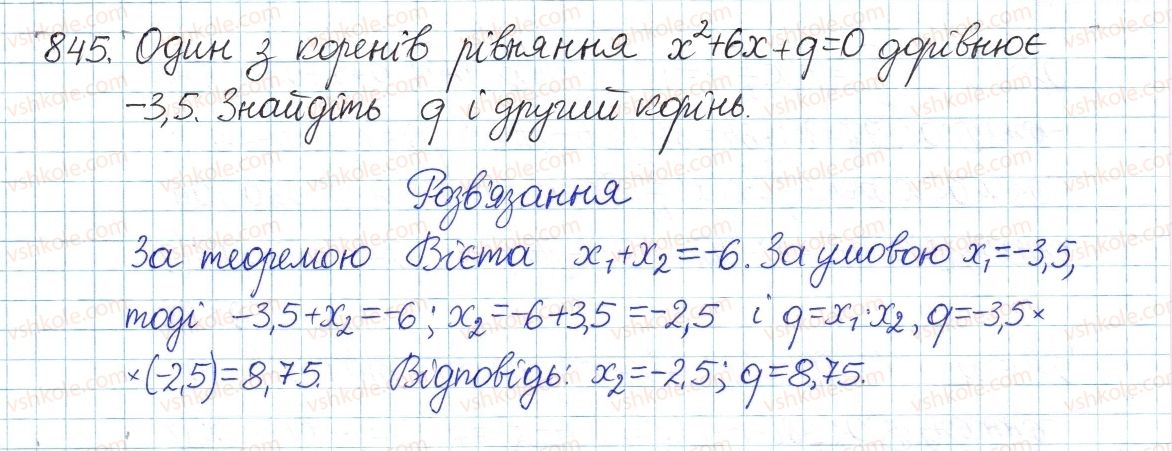 845. Один з коренів рівняння x²+6x+q=0 дорівнює
-3,5. Знайдіть q і другий корінь.
Розв'язання
За теоремою Вієта x₁+x₂=-6. За умовою x₁=-3,5,
тоді -3,5+x₂=-6; x₂=-6+3,5=-2,5 і q=x₁·x₂, q=-3,5×
×(-2,5)=8,75. Відповідь: x₂=-2,5; q=8,75.